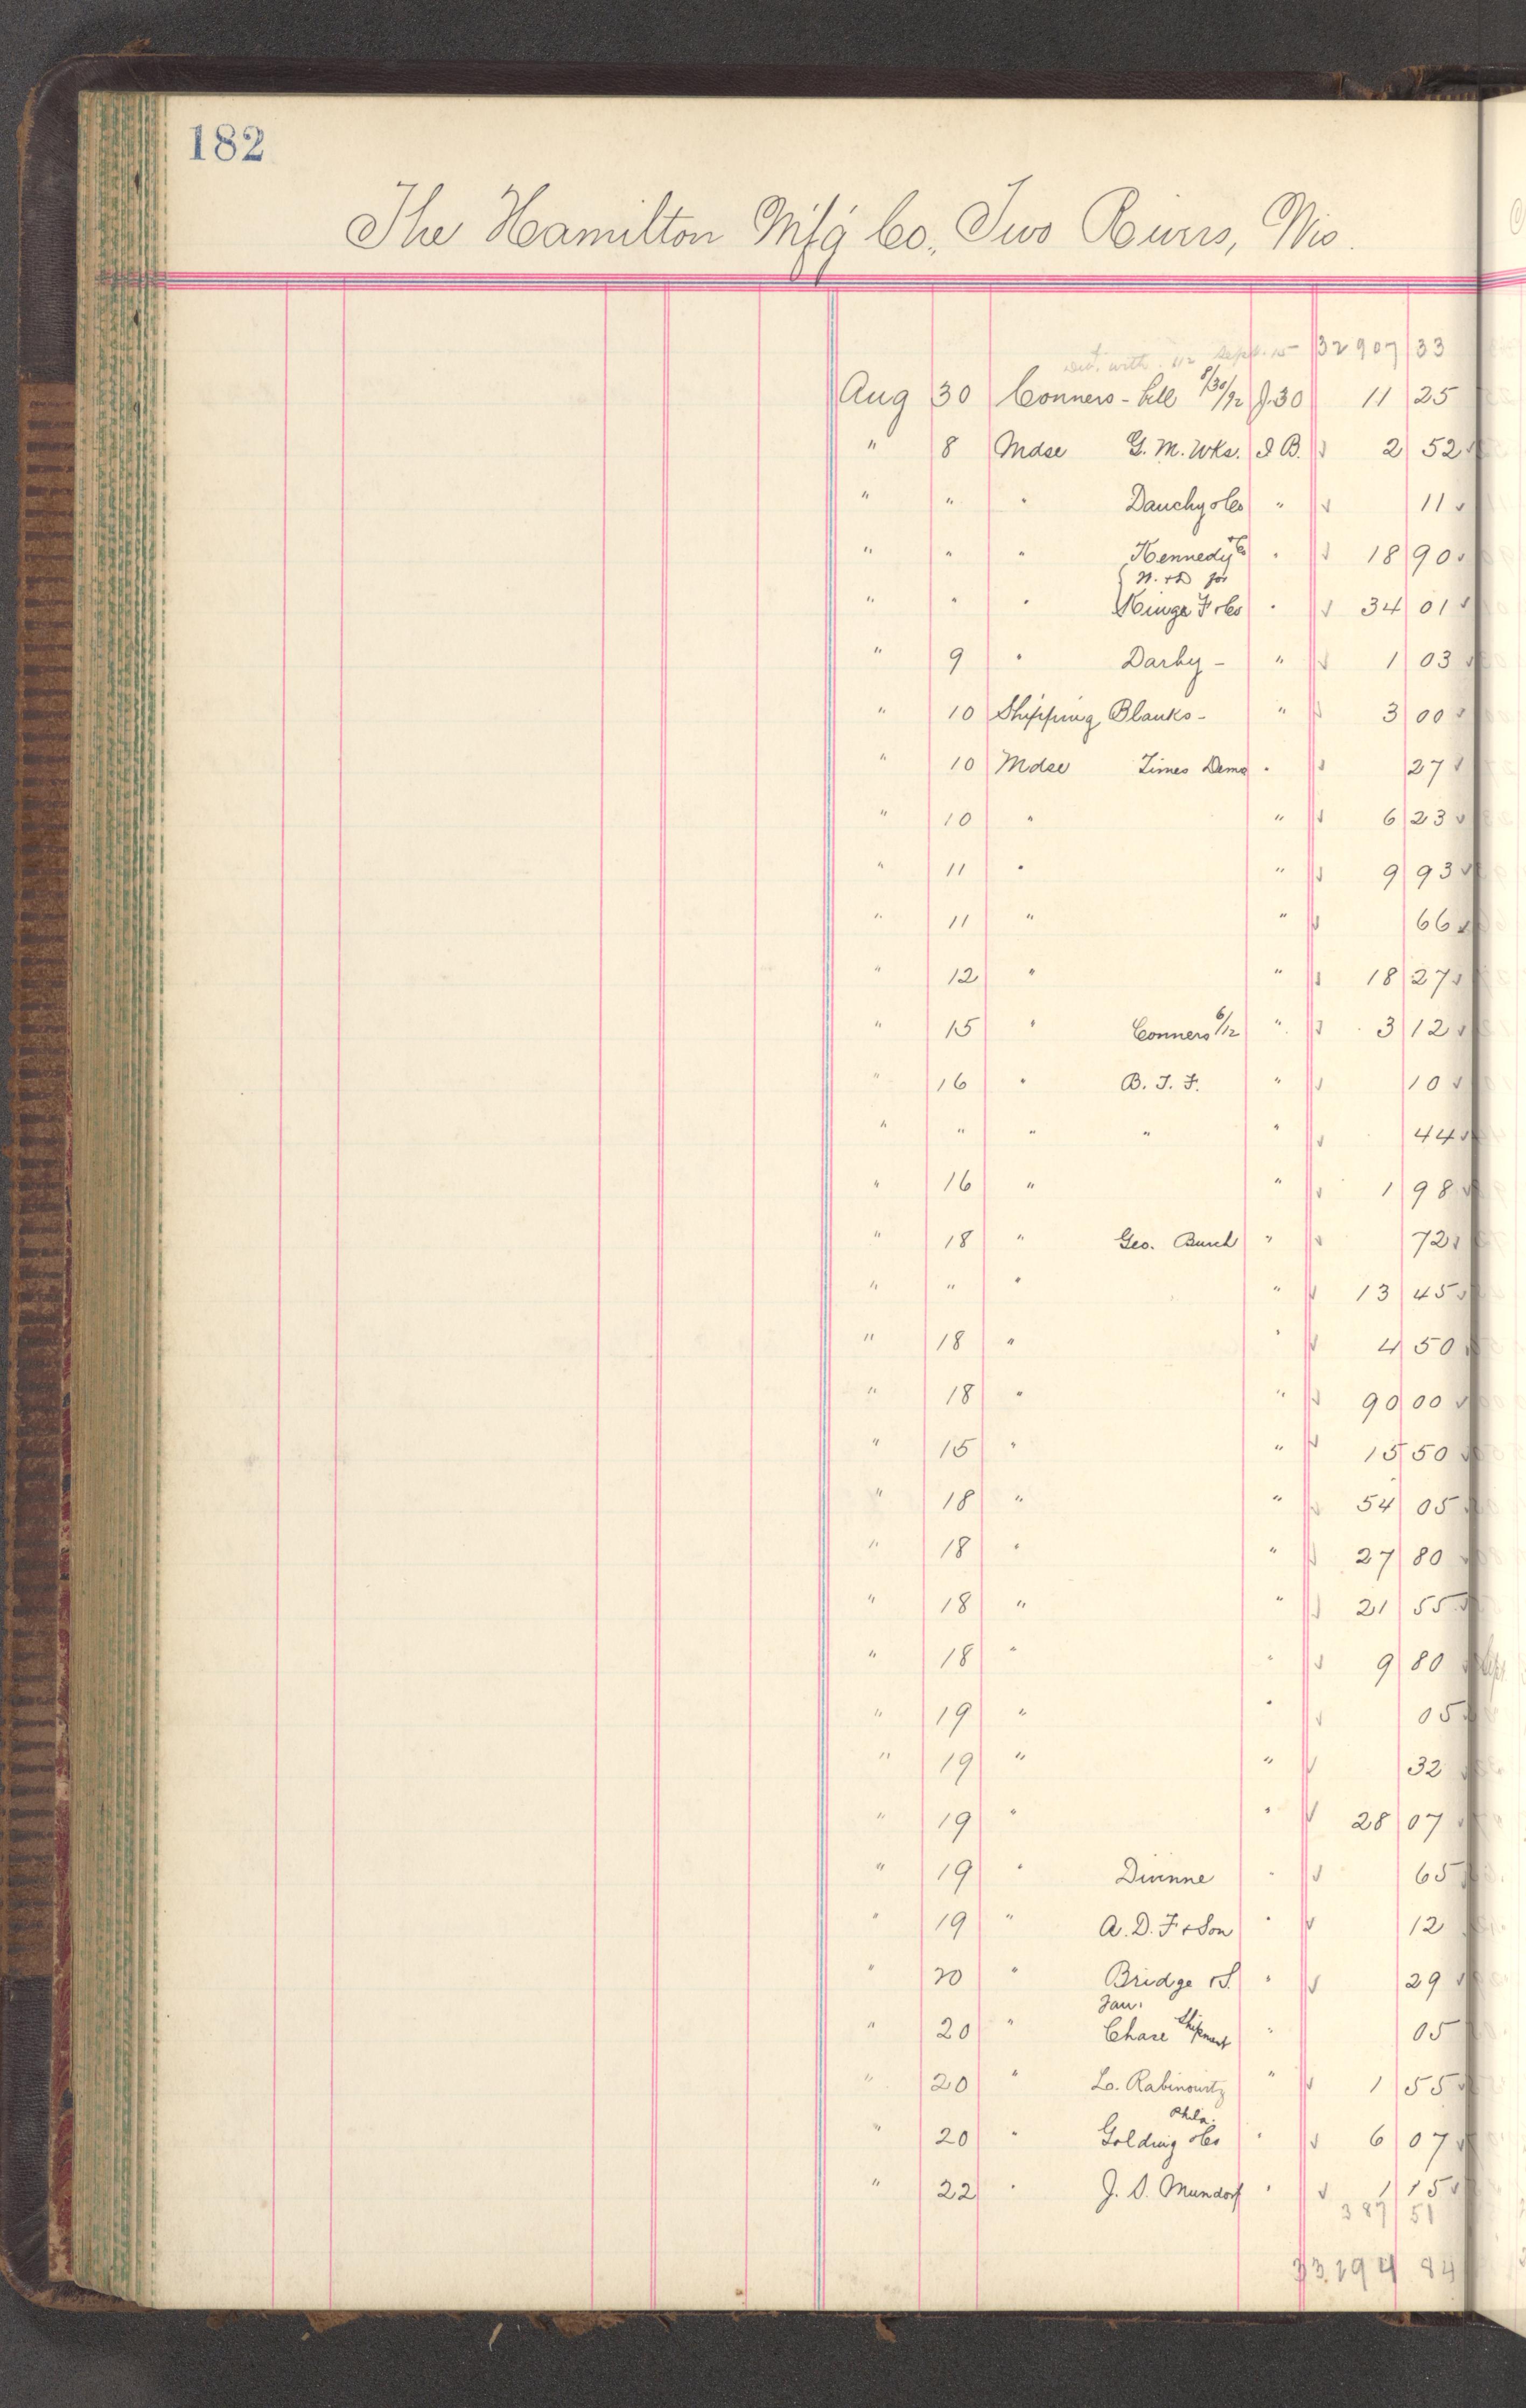 182
The Hamilton Mfg Co., Two Rivers, Wis.
Sept. 15 32 907 33
Aug 30 Conners - 8/30/92 J.30 11 25
" 8 Mdse G. M. Wks. I B. √ 2 52 √
" " " Dauchy & Co " √ 11 √
" " " Kennedy & Co " √ 18 90 √
N. & D for
" " " Kinge F & Co " √ 34 01 √
" 9 " Darby - " √ 1 03 √
" 10 Shipping Blanks - " √ 3 00 √
" 10 Mdse Times Demo " √ 27 √
" 10 " " √ 6 23 √
" 11 " " √ 9 93 √
" 11 " " √ 66 √
" 12 " " √ 18 27 √
" 15 " Conners 6/12 " √ 3 12 √
" 16 " B. T. F. " √ 10 √
" " " " " √ 44 √
" 16 " " √ 1 98 √
" 18 " Geo. Burch " √ 72 √
" " " " √ 13 45 √
" 18 " " √ 4 50 √
" 18 " " √ 90 00 √
" 15 " " √ 15 50 √
" 18 " " √ 54 05 √
" 18 " " √ 27 80 √
" 18 " " √ 21 55 √
" 18 " " √ 9 80 √
" 19 " " √ 05 √
" 19 " " √ 32 √
" 19 " " √ 28 07 √
" 19 " Divinne " √ 65 √
" 19 " A. D. F & Son " √ 12
" 20 " Bridge & S. " √ 29 √
Jan.
" 20 " Chase Shipment " 05
" 20 " L. Rabinowitz " √ 1 55 √
Phila.
" 20 " Golding & Co " √ 6 07 √
" 22 " J. D. Mundorf " √ 1 15 √
387 51
33,294 84